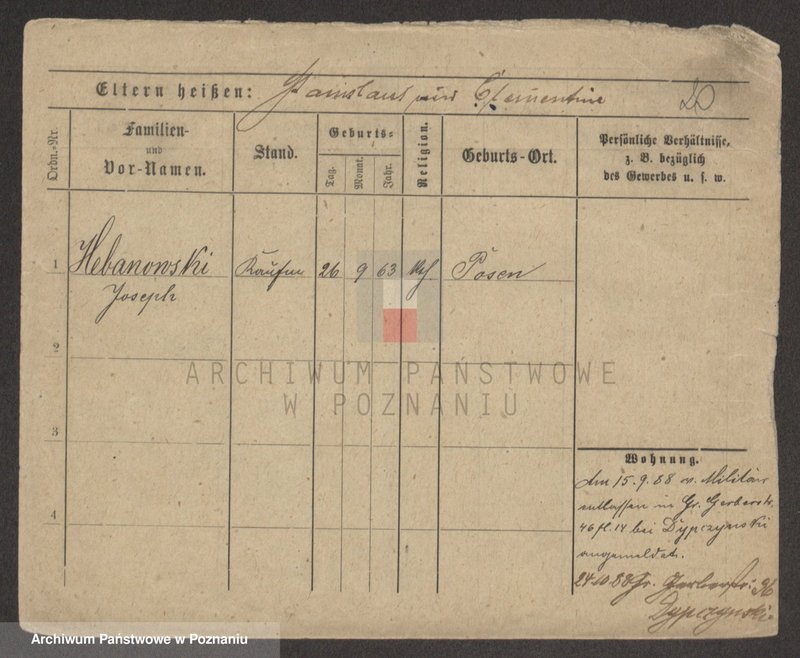 Eltern heißen: Stanislaus und Clementine 20
Ordn.-Nr.
Familien-
und
Vor-Namen.
Stand.
Geburts-
Tag.
Monat.
Jahr.
Religion.
Geburts-Ort.
Persönliche Verhältnisse,
z. B. bezüglich
des Gewerbes u. s. w.
1 Hebanowski Kaufm 26 9 63 Posen
Joseph
2
3
4
ARCHIWUM PAŃSTWOWE
W POZNANIU
Wohnung.
Am 15.9.88 v. Militär
entlassen in Gr. Gerberstr.
46 bei Dypczynski
angemeldet.
24.10.88 Gr. Gerberstr. 
Dypczynski
Archiwum Państwowe w Poznaniu